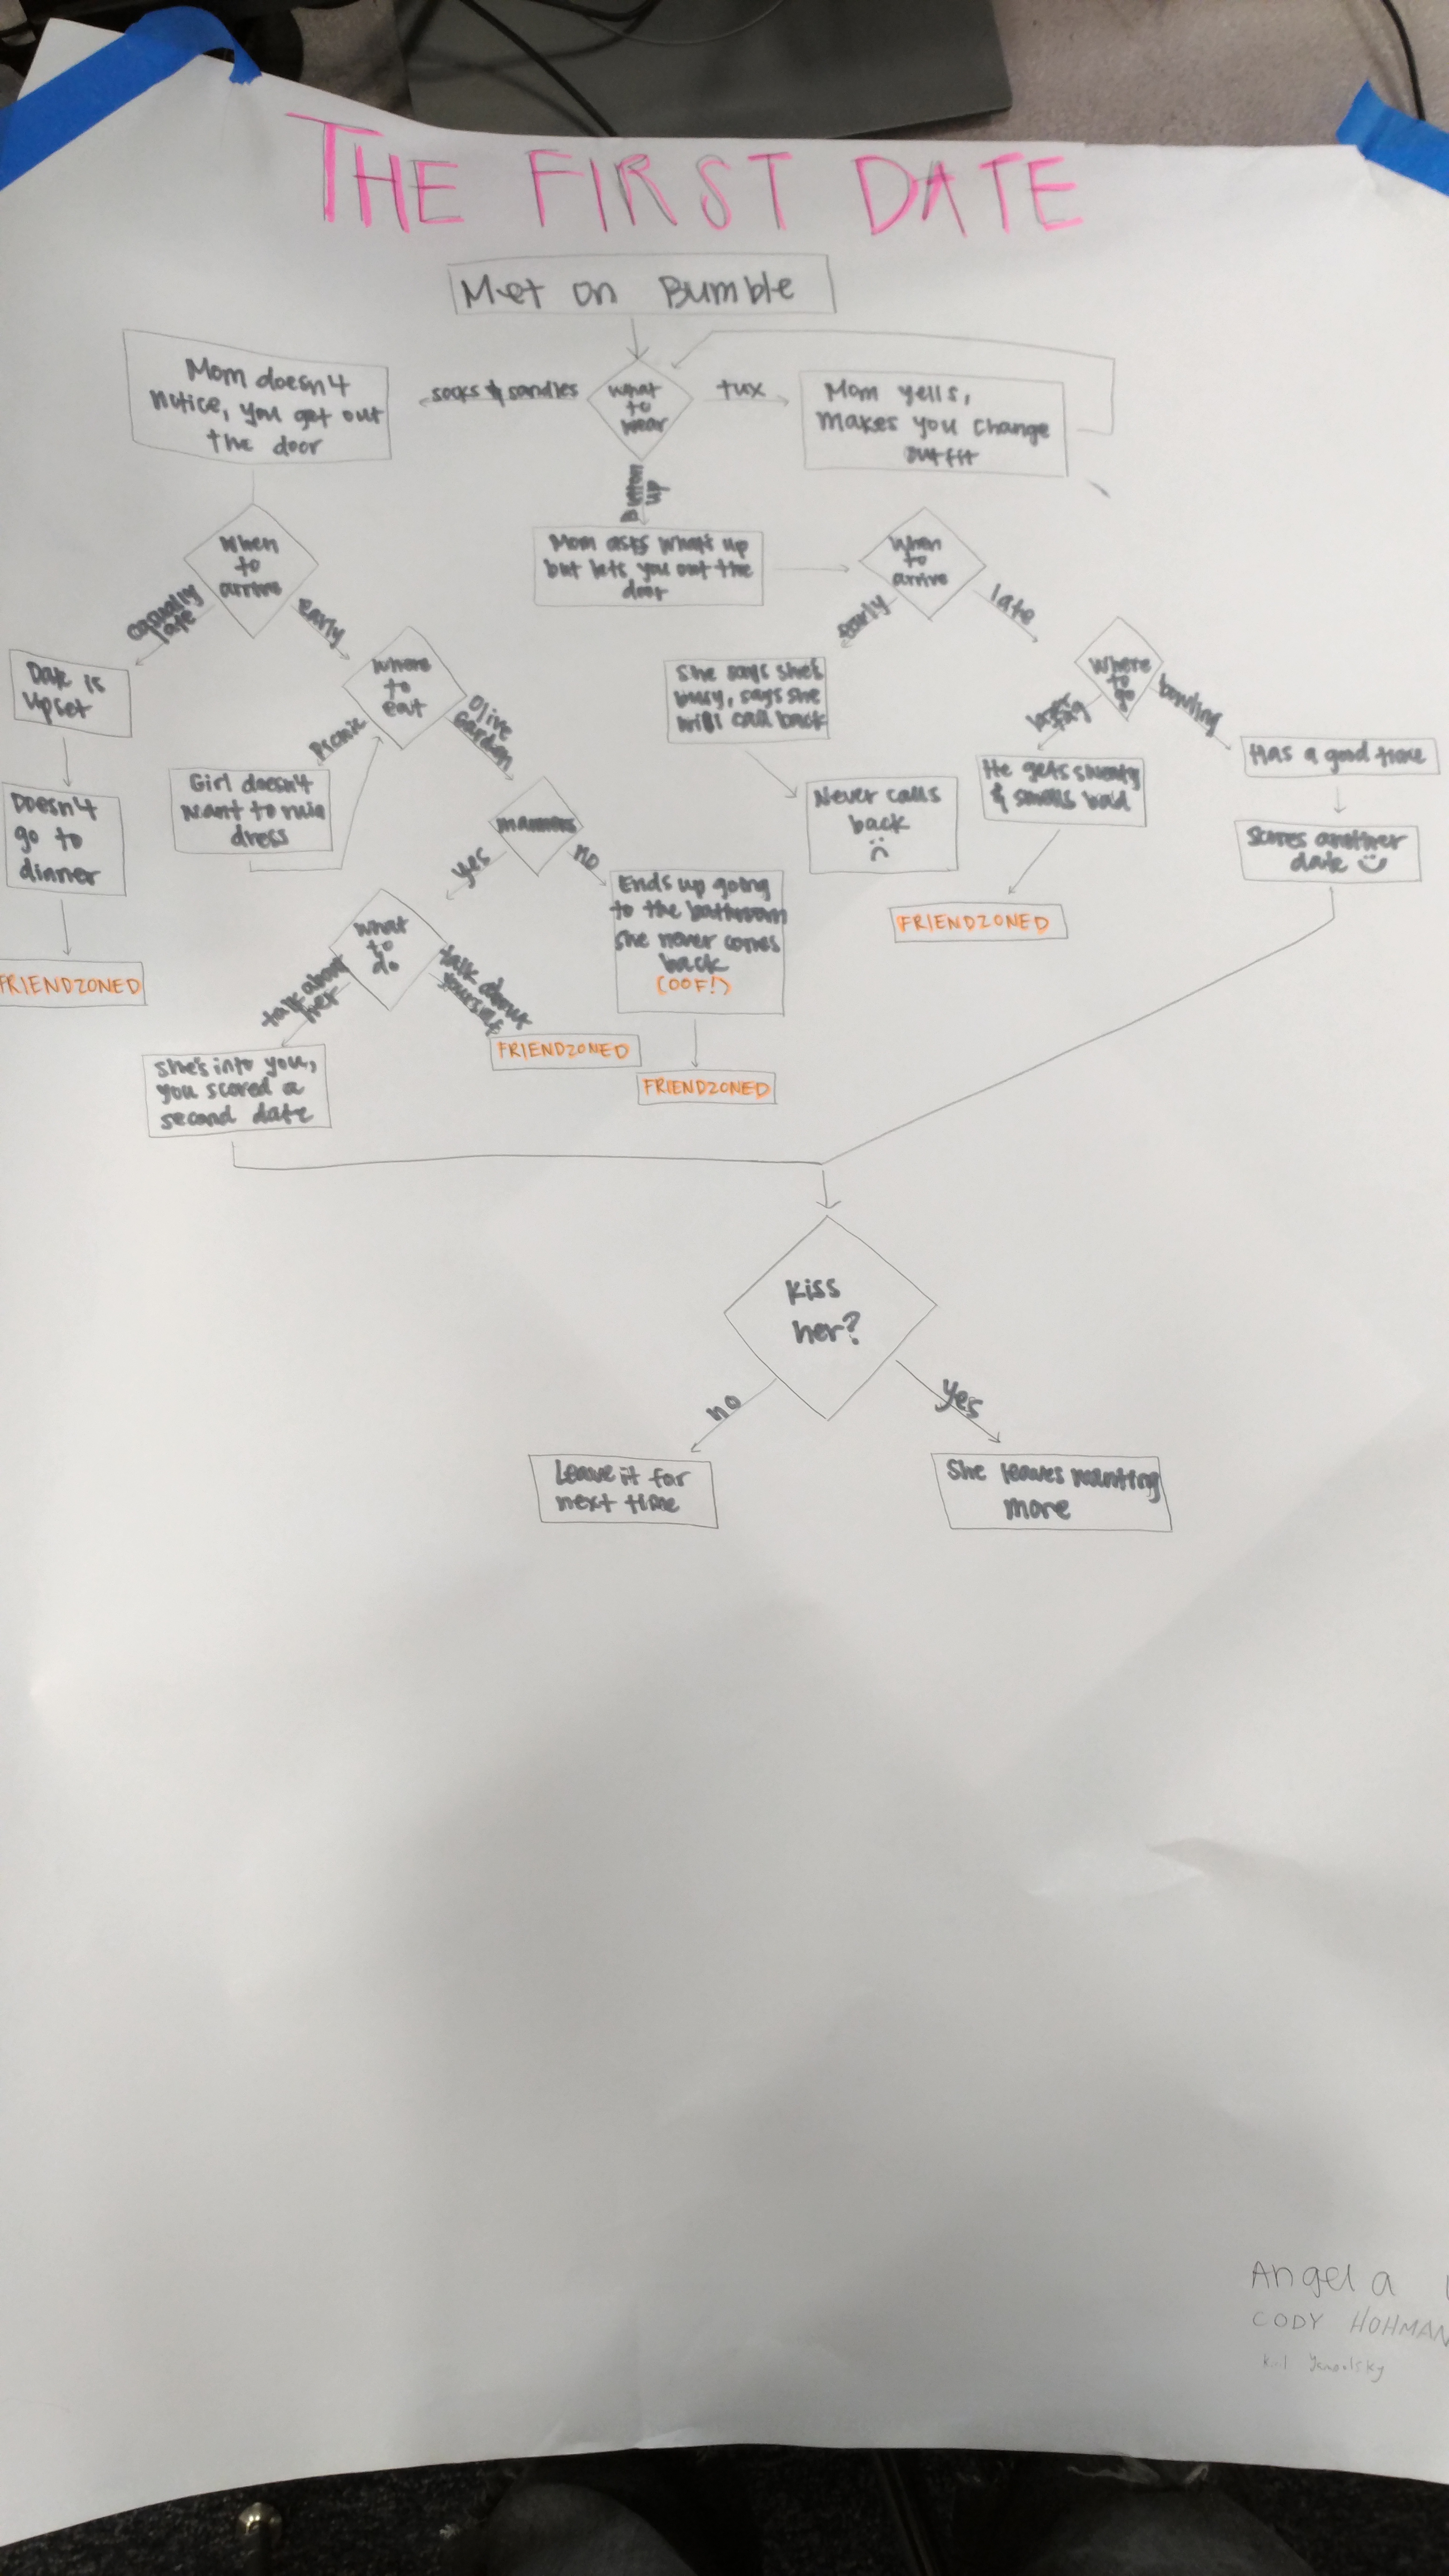 THE FIRST DATE
Met on Bumble
Mom doesn4
notice, you get out
the door
socks & sandles
What
to
wear
tux
Mom yells,
makes you change
outfit
Button
up
When
to
arrive
Mom asks what's up
but lets you out the
door
When
to
arrive
casually
late
early
early
late
Date is
upset
Where
to
eat
Picnic
Olive
Garden
She says she's
busy, says she
will call back
Where
to
go
bowling
Has a good time
Doesn4
go to
dinner
Girl doesn4
want to ruin
dress
manners
yes
no
Never calls
back
He gets sweaty
& smells bad
Scores another
date
FRIENDZONED
What
to
do
talk about
her
talk about
yourself
Ends up going
to the bathroom
She never comes
back
(OOF!)
FRIENDZONED
FRIENDZONED
FRIENDZONED
she's into you,
you scored a
second date
Kiss
her?
no
yes
Leave it for
next time
She leaves wanting
more
Angela
CODY HOHMAN